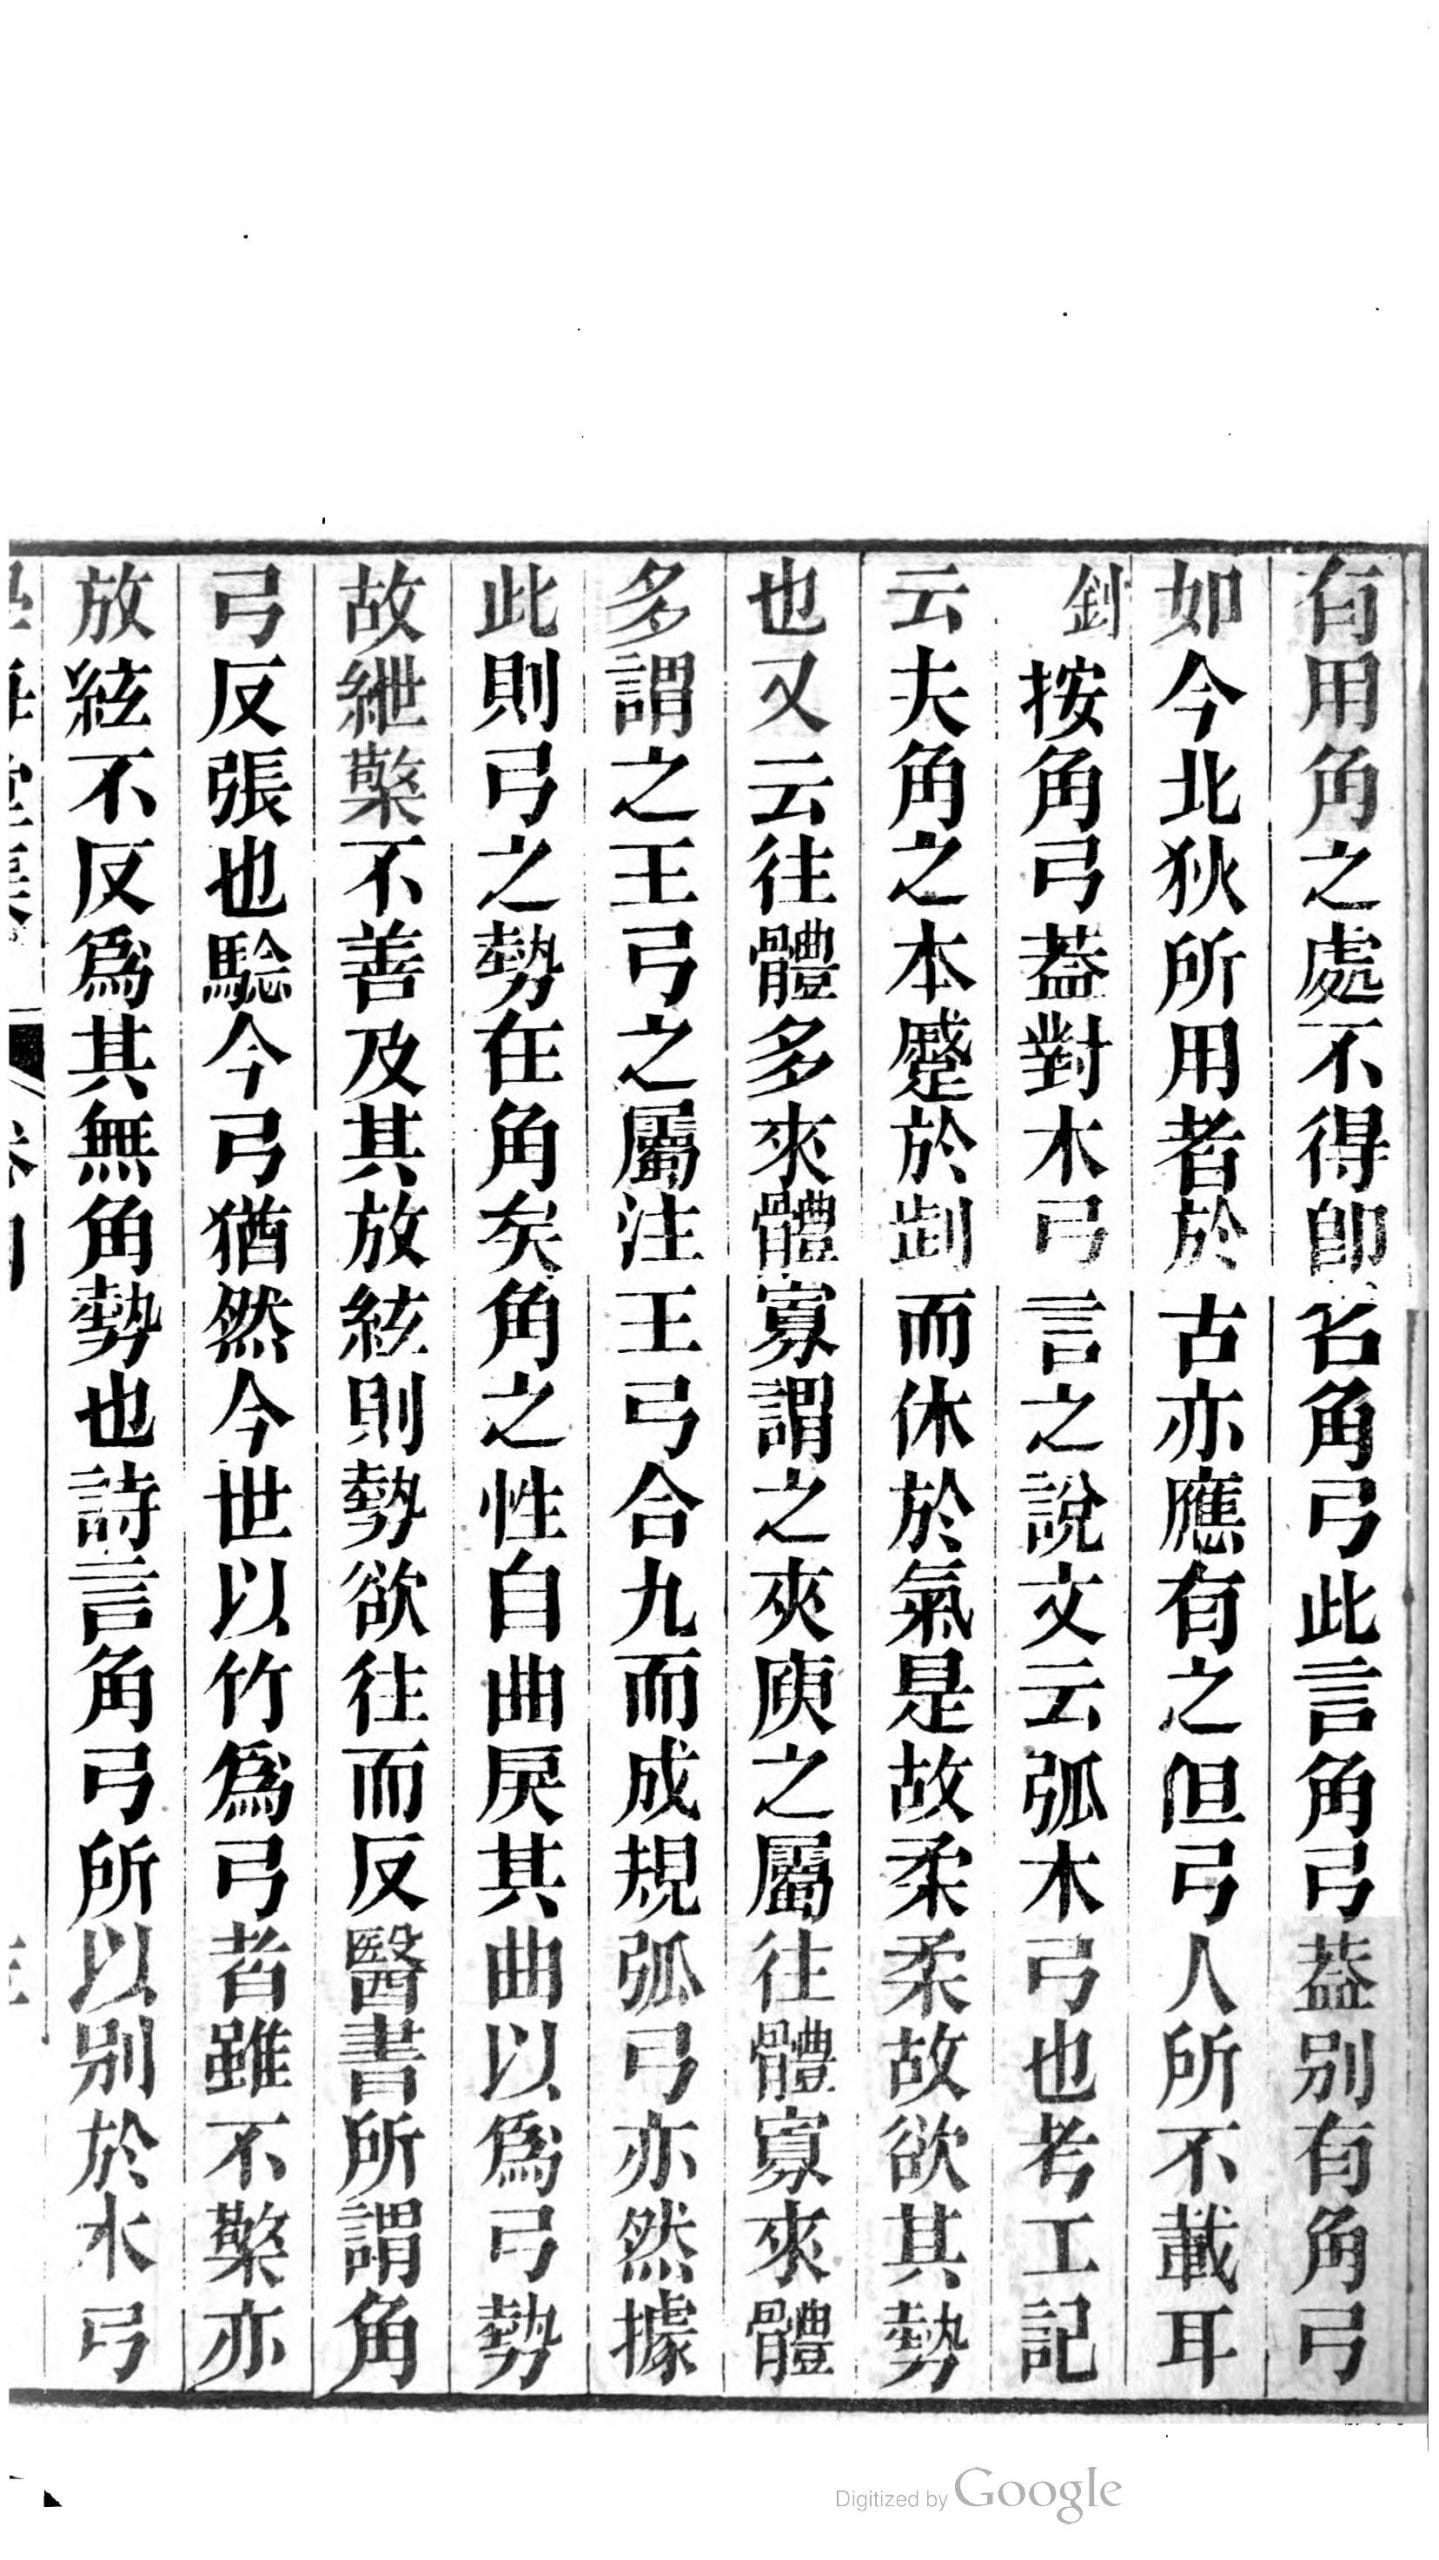 有用角之處不得卽名角弓此言角弓葢别有角弓
如今北狄所用者於古亦應有之但弓人所不載耳
釗按角弓葢對木弓言之說文云弧木弓也考工記
云夫角之本蹙於㓽而休於氣是故柔柔故欲其勢
也又云往體多來體寡謂之夾庾之屬往體寡來體
多謂之王弓之屬注王弓合九而成規弧弓亦然據
此則弓之勢在角矣角之性自曲戾其曲以爲弓勢
故紲檠不善及其放絃則勢欲往而反醫書所謂角
弓反張也騐今弓猶然今世以竹爲弓者雖不檠亦
放絃不反爲其無角勢也詩言角弓所以别於木弓
Digitized by Google